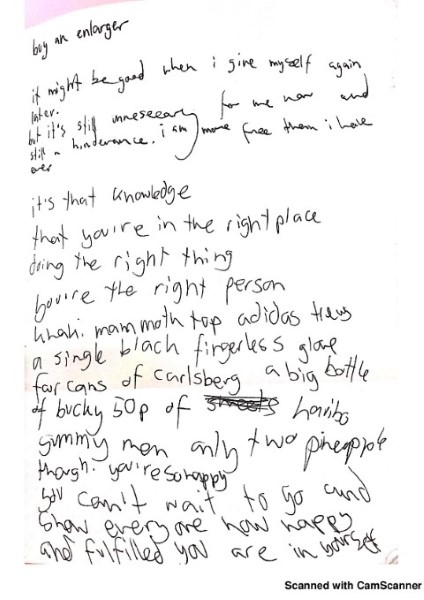 buy an enlarger
it might be good when i give myself again
later.
but it's still unneseeary for me now and
still a hinderance. i am more free them i have
ever
it's that knowledge
that you're in the right place
doing the right thing
you're the right person
khaki. mammoth top adidas trews
a single black fingerless glove
four cans of carlsberg a big bottle
of bucky 50p of sweets haribo
gummy men only two pineapple
though. you're so happy
you can't wait to go and
show everyone how happy
and fulfilled you are in yourself
Scanned with CamScanner